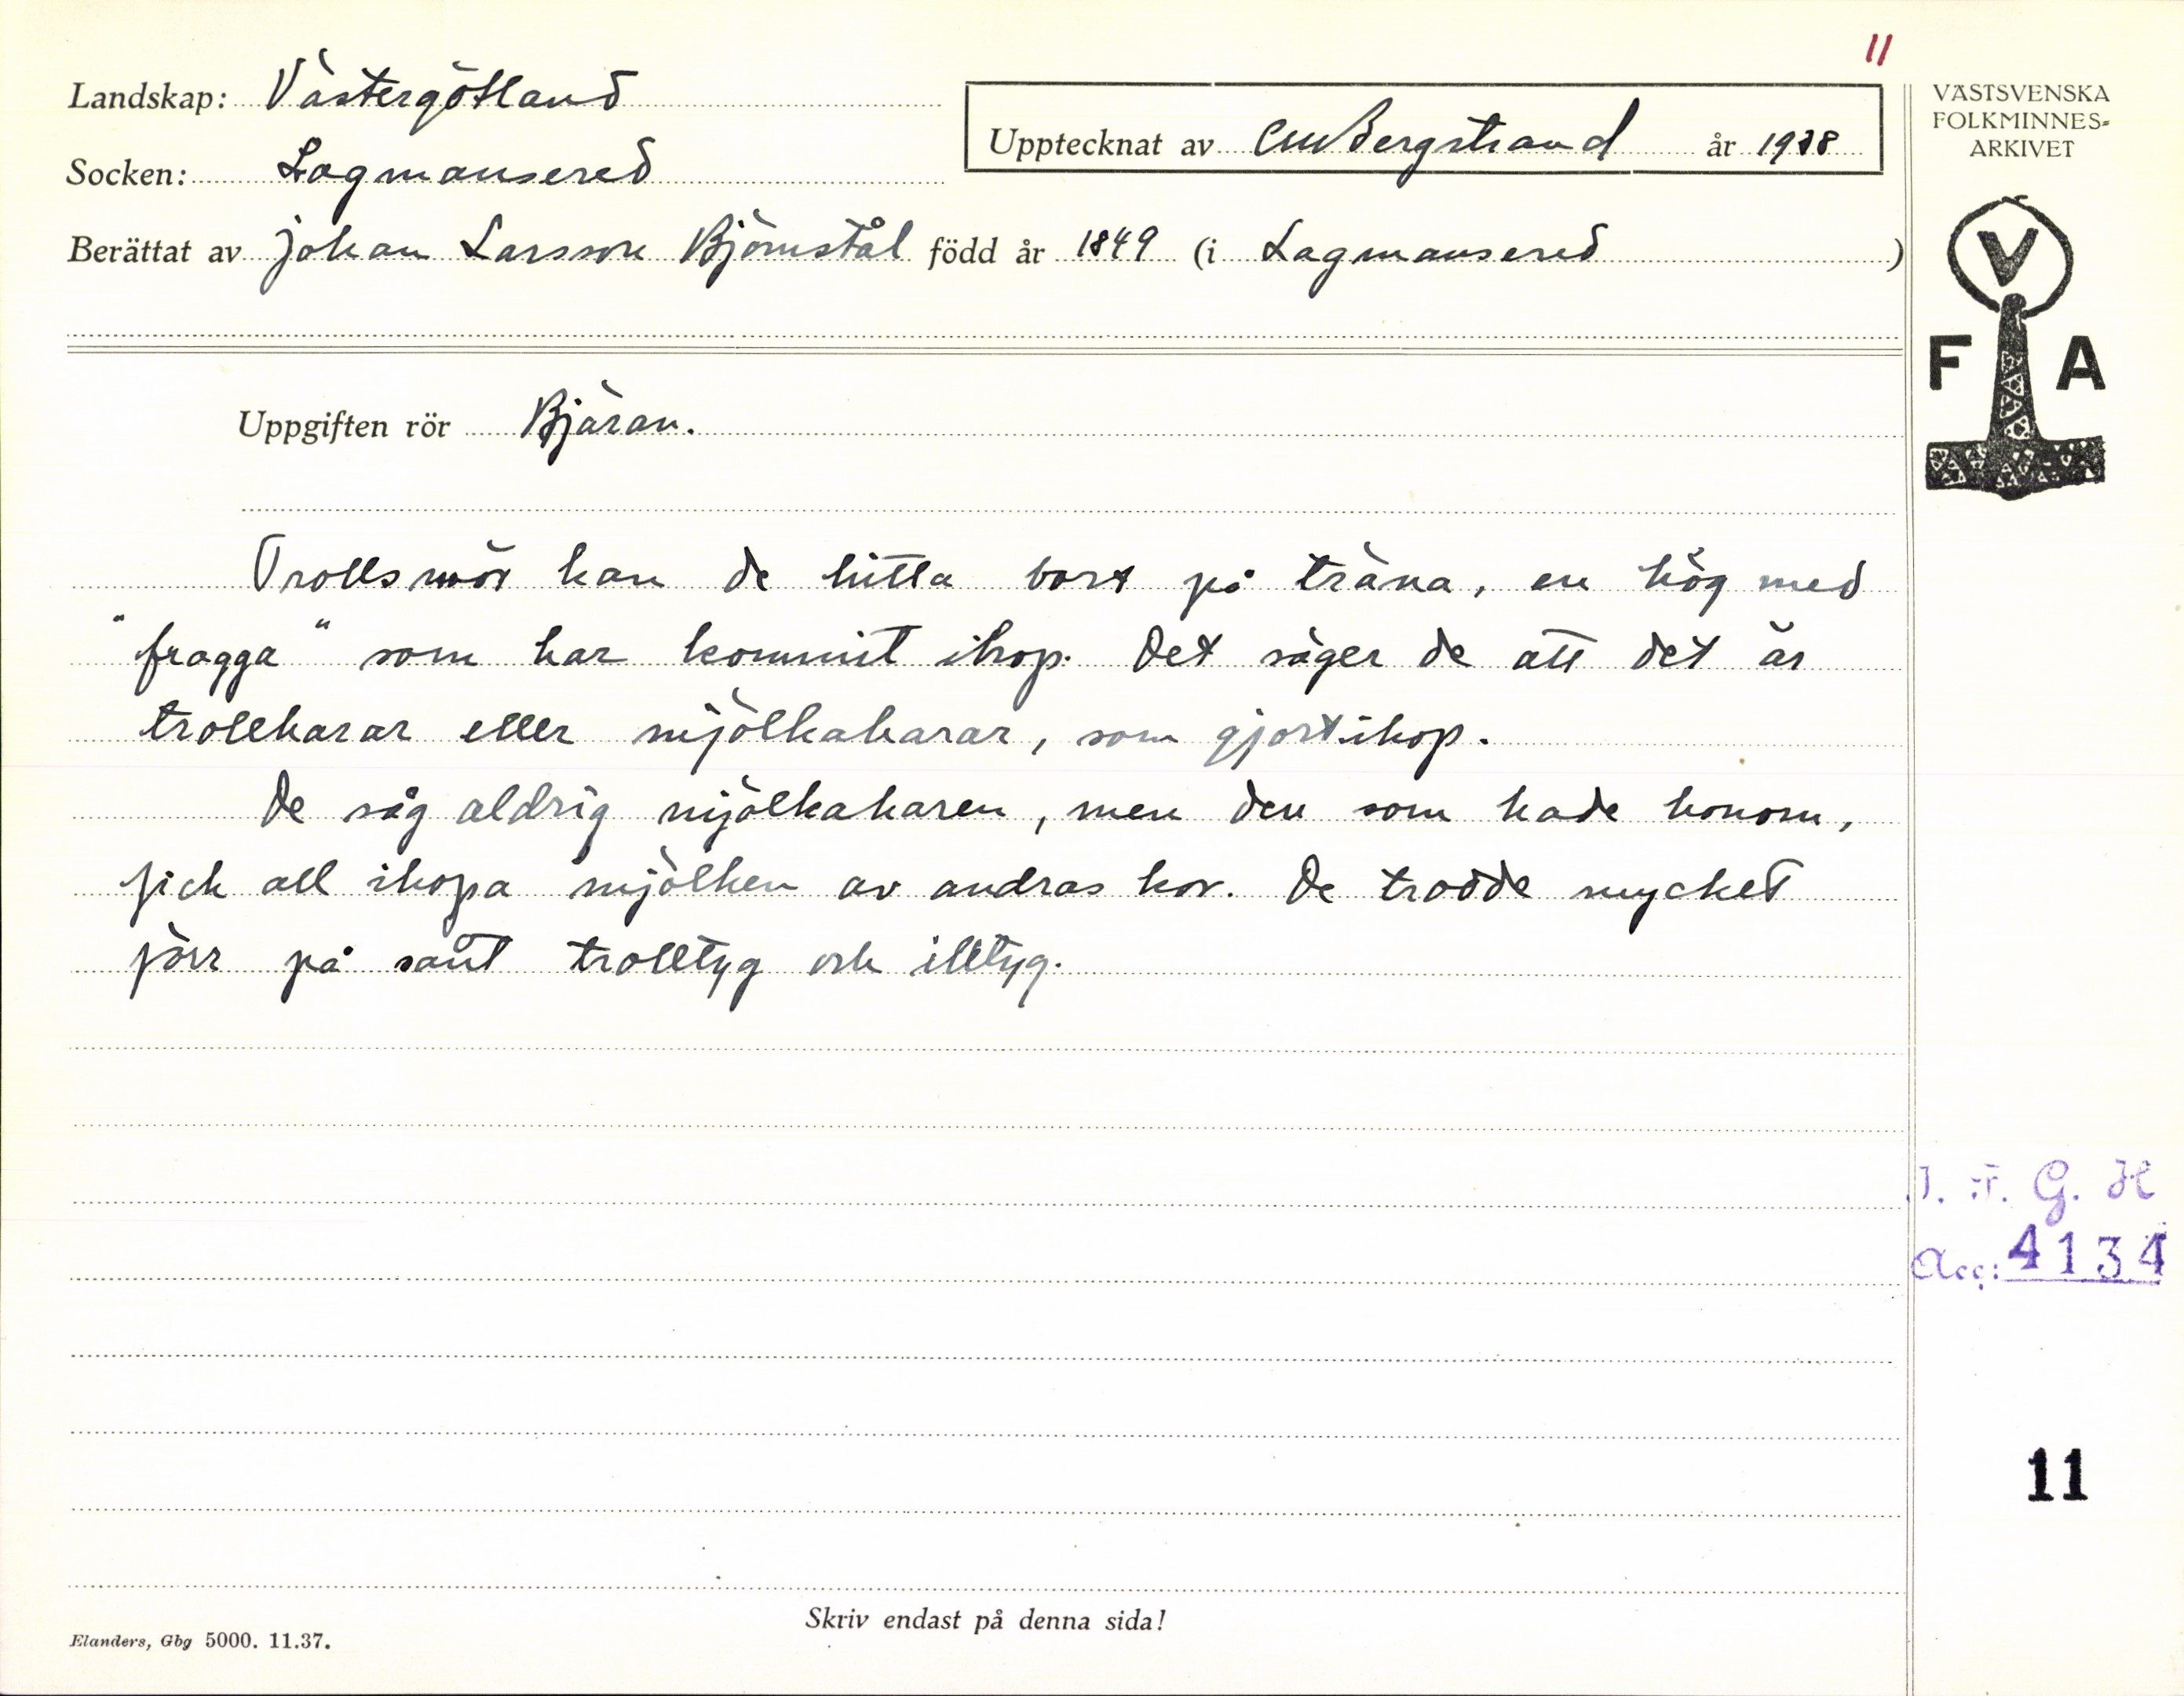 11
Landskap: Västergötland
Upptecknat av CM Bergstrand år 1938
VÄSTSVENSKA
FOLKMINNES-
ARKIVET
Socken: Lagmansered
Berättat av Johan Larsson Björnstål född år 1849 (i Lagmansered )
V
F A
Uppgiften rör Bjäran.
Trollsmör kan de hitta bort på träna, en hög med
"fragga" som har kommit ihop. Det säger de att det är
trollharar eller mjölkaharar, som gjort ihop.
De såg aldrig mjölkaharen, men den som hade honom,
fick all ihopa mjölken av andras kor. De trodde mycket
förr på sånt trolltyg och illtyg.
I. F. G. H
Acc: 4134
11
Skriv endast på denna sida!
Elanders, Gbg 5000. 11.37.